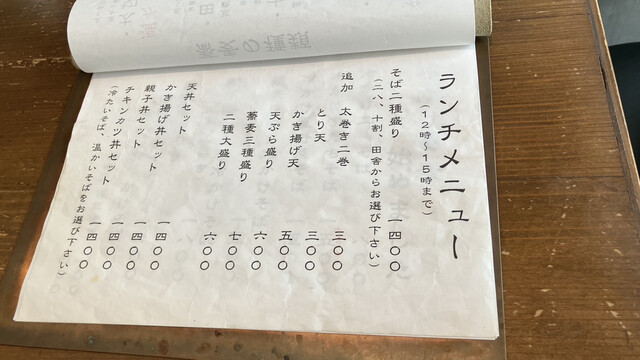 ランチメニュー
(12時〜15時まで)
そば二種盛り 一四〇〇
(二八、十割、田舎からお選び下さい)
追加 太巻き二巻 三〇〇
とり天 三〇〇
かき揚げ天 五〇〇
天ぷら盛り 六〇〇
蕎麦三種盛り 七〇〇
二種大盛り 六〇〇
天丼セット 一四〇〇
かき揚げ丼セット 一四〇〇
親子丼セット 一四〇〇
チキンカツ丼セット 一四〇〇
(冷たいそば、温かいそばをお選び下さい)
蕎麦の種類